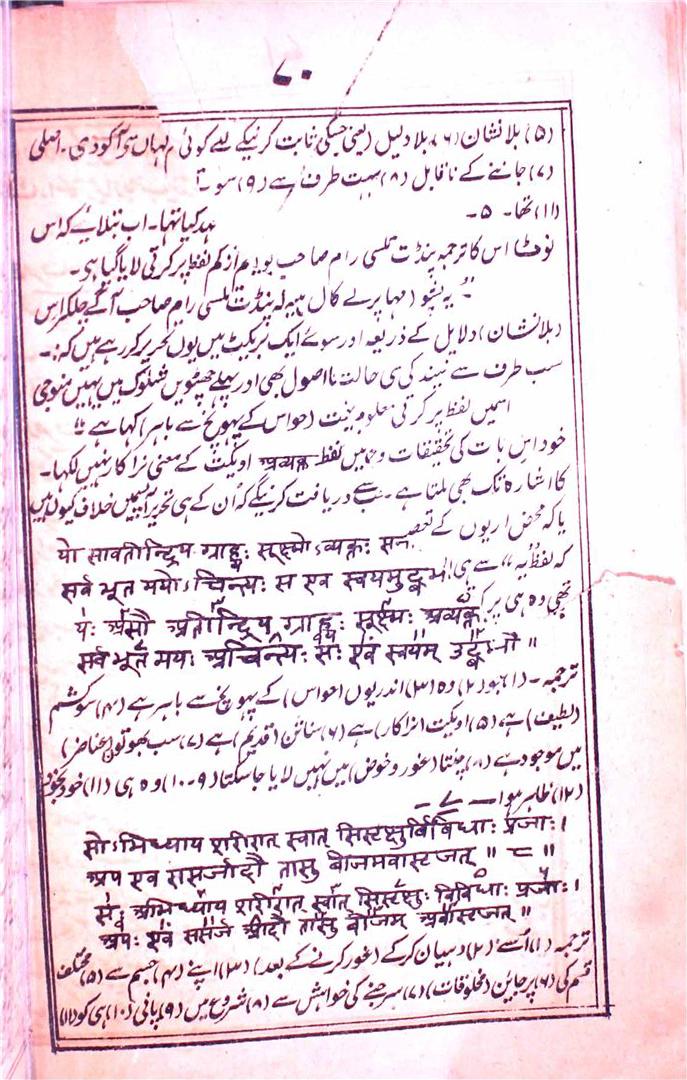 ۸۰
(۵) بلا نشان (۶) بلا دلیل (یعنی جسکی ثابت کرنیکے لئے کوئی
(۷) جاننے کے ناقابل (۸) بہت طرف سے (۹) سو
(۱۱) تھا۔ ۵۔
ہد کیا تہا۔ اب بتلائیے کہ اس
نوٹ! اس کا ترجمہ پنڈت تلسی رام صاحب از کم لفظ پر کرتی لایا گیا ہی۔
پنڈت تلسی رام صاحب آگے چلکر اس
(بلانشان) دلایل کے ذریعہ اور سوئے ایک ٹریکٹ میں یوں تحریر کر رہے ہیں کہ:۔
سب طرف سے نیند کی ہی حالت اصول بھی اور پہلے چھپویں شلوک میں یہیں
اسمیں لفظ پر کرتی (حواس کے پہونچ سے باہر) کہا ہے
خود اس بات کی تحقیقات میں لفظ प्रव्यक्त اویکت کے معنی نراکار نہیں لکہا۔
کا اشارہ تک بھی ملتا ہے۔ سے دریافت کرنیگے کہ اُن کے ہی تحریر آپسمیں خلاف کیوں ہیں
یا کہ محض اریوں کے تعصب
यो सावतीन्द्रिय ग्राह्यः सूक्ष्मोऽव्यक्तः सन
کہ لفظ یہ سے ہی
सर्व भूत मयोऽचिन्त्यः स एव स्वयमुद्बभ
تھی وہ ہی پر ک
यः असौ अतीन्द्रिय ग्राह्यः सूक्ष्मः अव्यक्त
सर्व भूत मयः अचिन्त्यः सः एव स्वयम् उद्बभौ ॥
ترجمہ۔ (۱) جو (۲) وہ (۳) اندریوں (حواس) کے پہونچ سے باہر ہے (۴) سوکشم
(لطیف) ہے، (۵) اویکت (نراکار) ہے (۶) سناتن (قدیم) ہے (۷) سب بھوتوں (عناصر)
میں موجود ہے (۸) چنتا (غور و خوض) میں نہیں لایا جاسکتا (۹۔۱۰) وہ ہی (۱۱) خود بخود
(۱۲) ظاہر ہوا۔ ۷۔
सोऽभिध्याय शरीरात् स्वात् सिसृक्षुर्विविधाः प्रजाः।
अप एव ससर्जादौ तासु बीजमवासृजत् ॥ ८ ॥
सः अभिध्याय शरीरात् स्वात् सिसृक्षुः विविधाः प्रजाः।
अपः एव ससर्ज आदौ तासु बीजम् अवासृजत् ॥
ترجمہ (۱) اُسنے (۲) دہیان کرکے (غور کرنے کے بعد) (۳) اپنے (۴) جسم سے (۵) مختلف
قسم کی (۶) پرجایئن (مخلوقات) (۷) سرجنے کی خواہش سے (۸) شروع میں (۹) پانی (۱۰) ہی کو (۱۱)